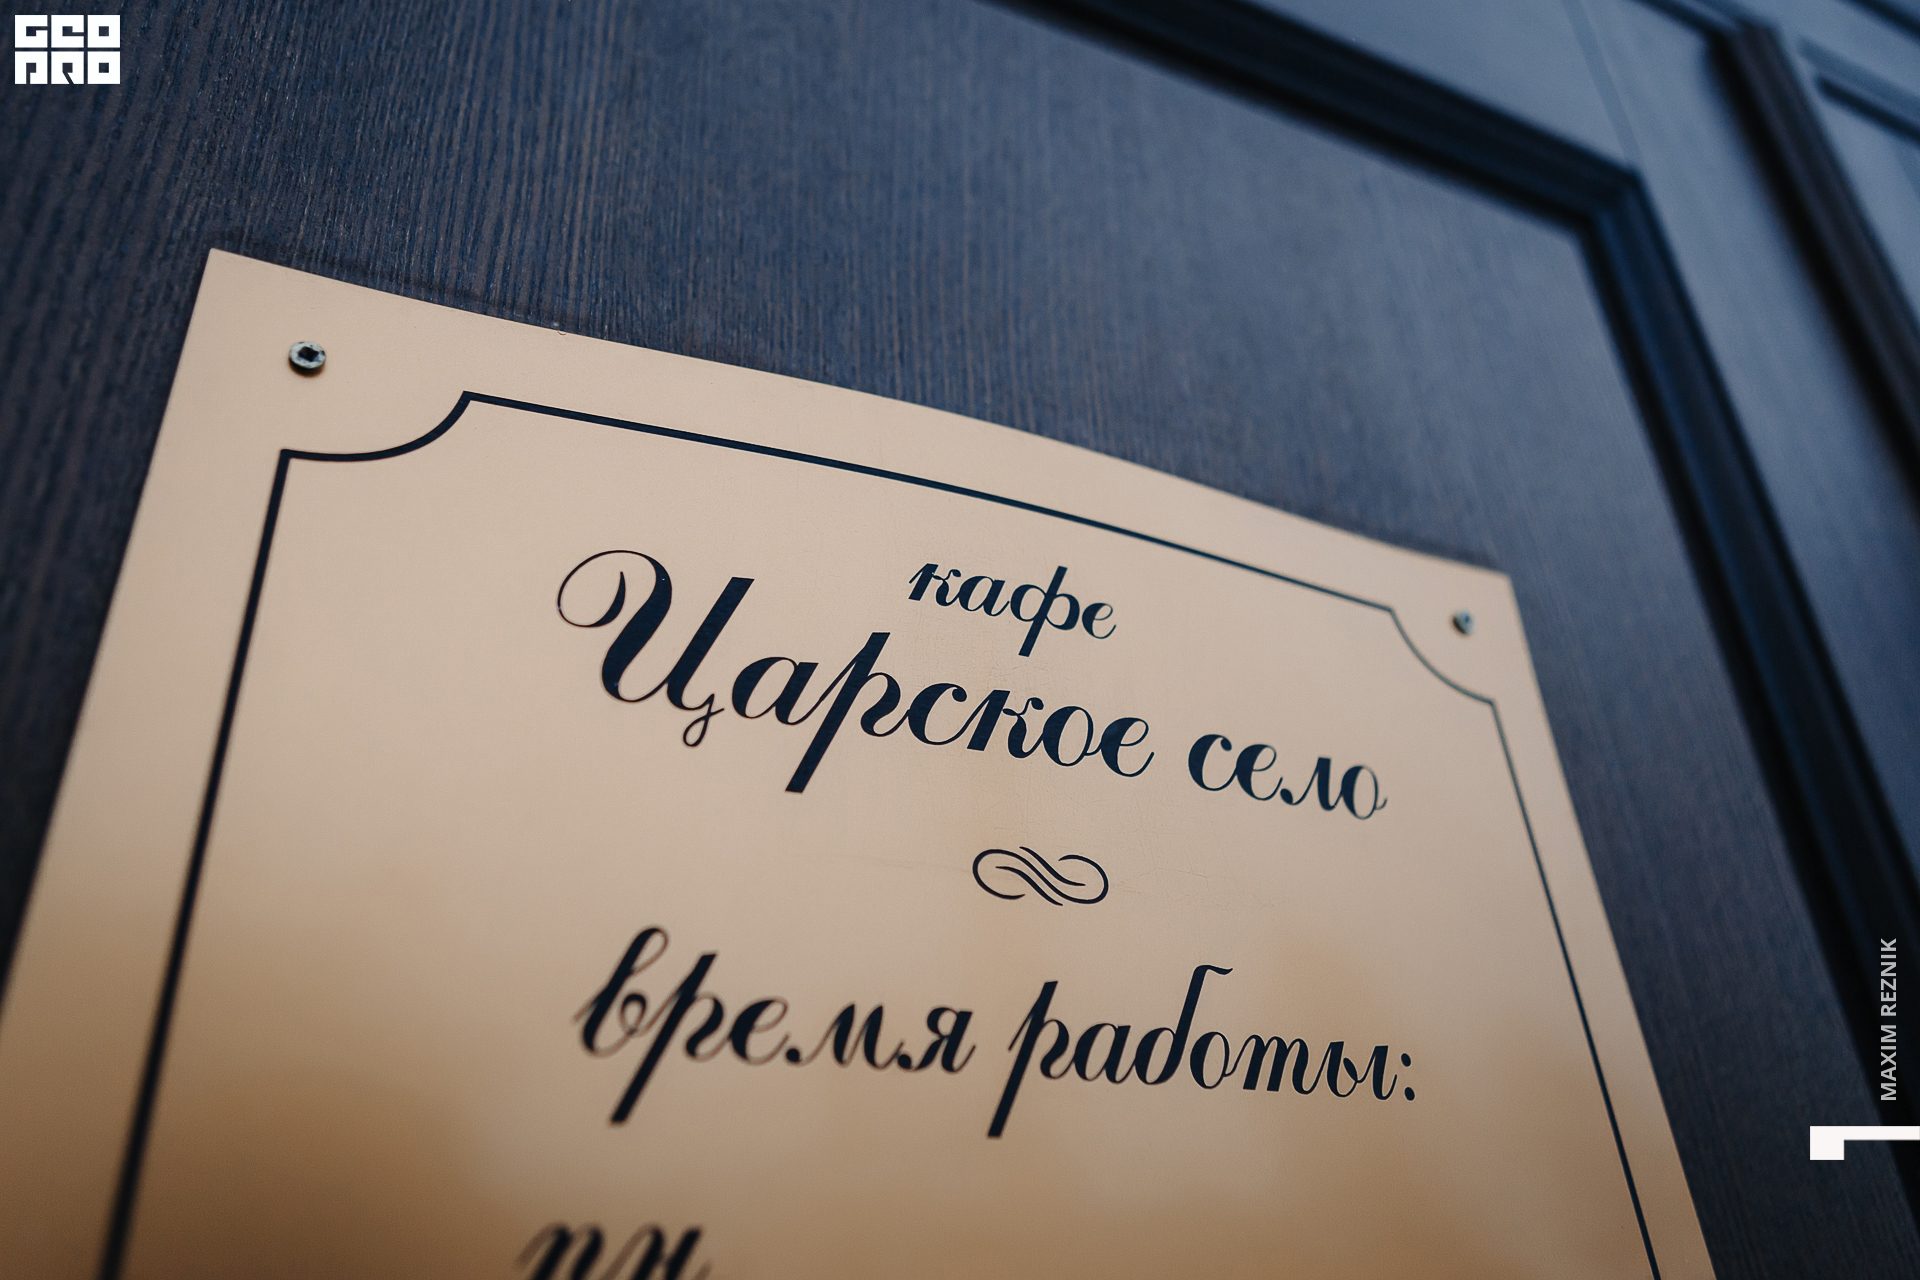 GEO
PRO
кафе
Царское село
время работы:
пн
MAXIM REZNIK